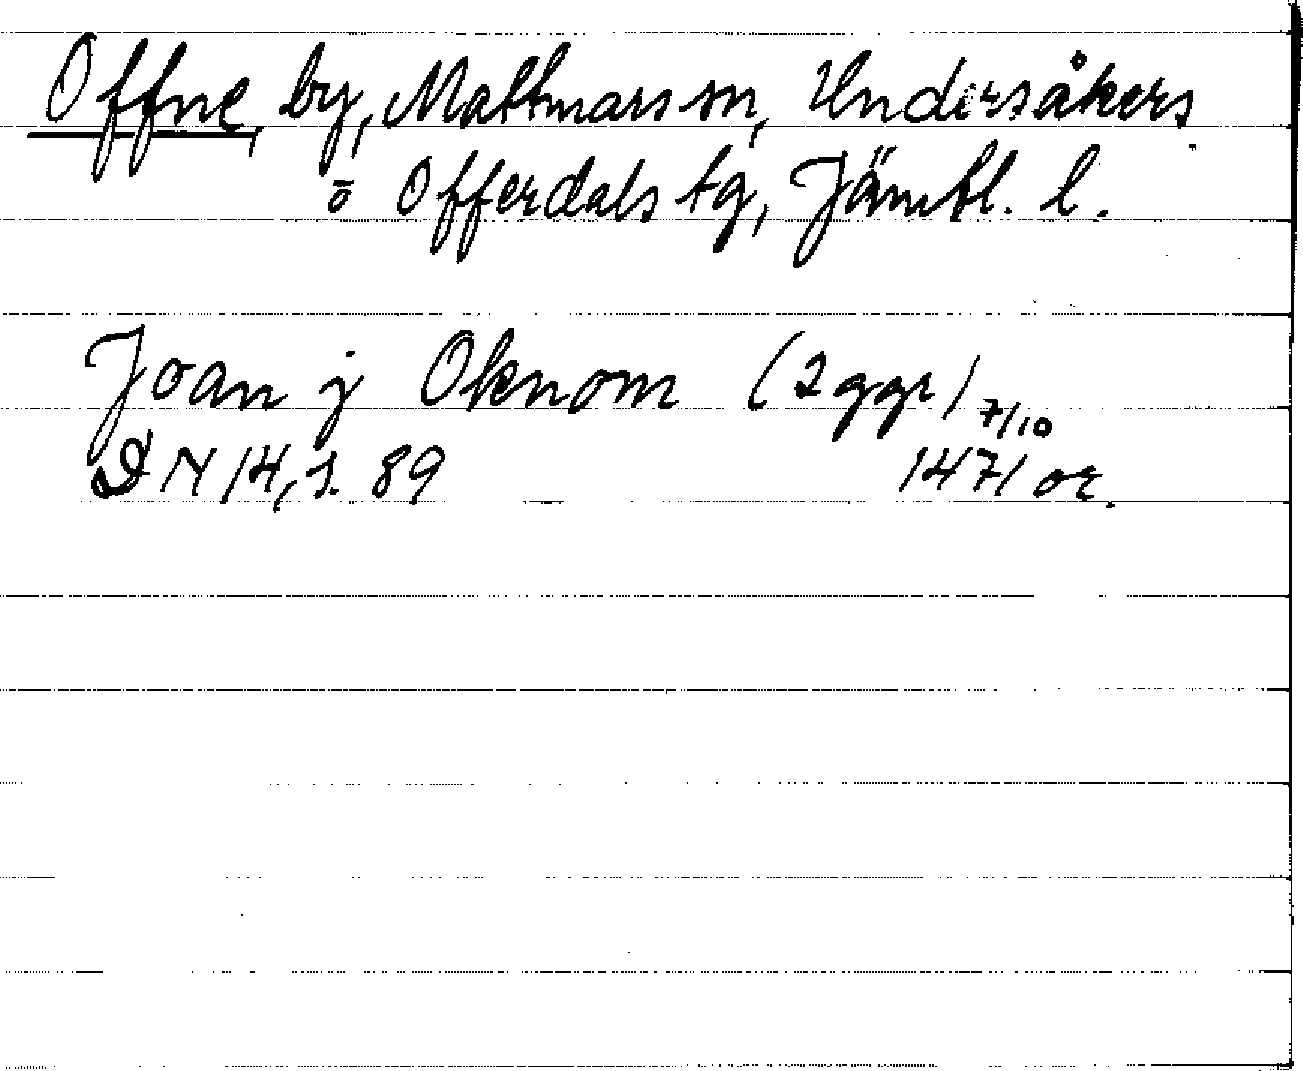 Offne, by, Mattmars sn, Undersåkers
o Offerdals tg, Jämtl. l.
Joan j Oknom (2 ggr) 7/10
DN 14, s. 89 1471 or.